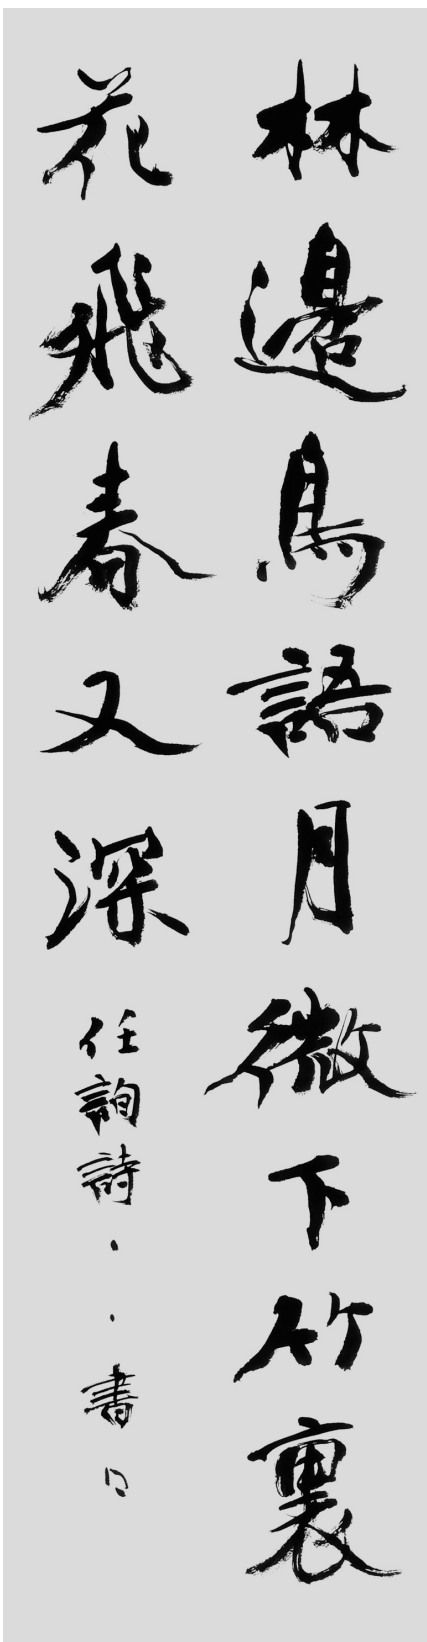 林邊鳥語月微下竹裏
花飛春又深 任詢詩 書